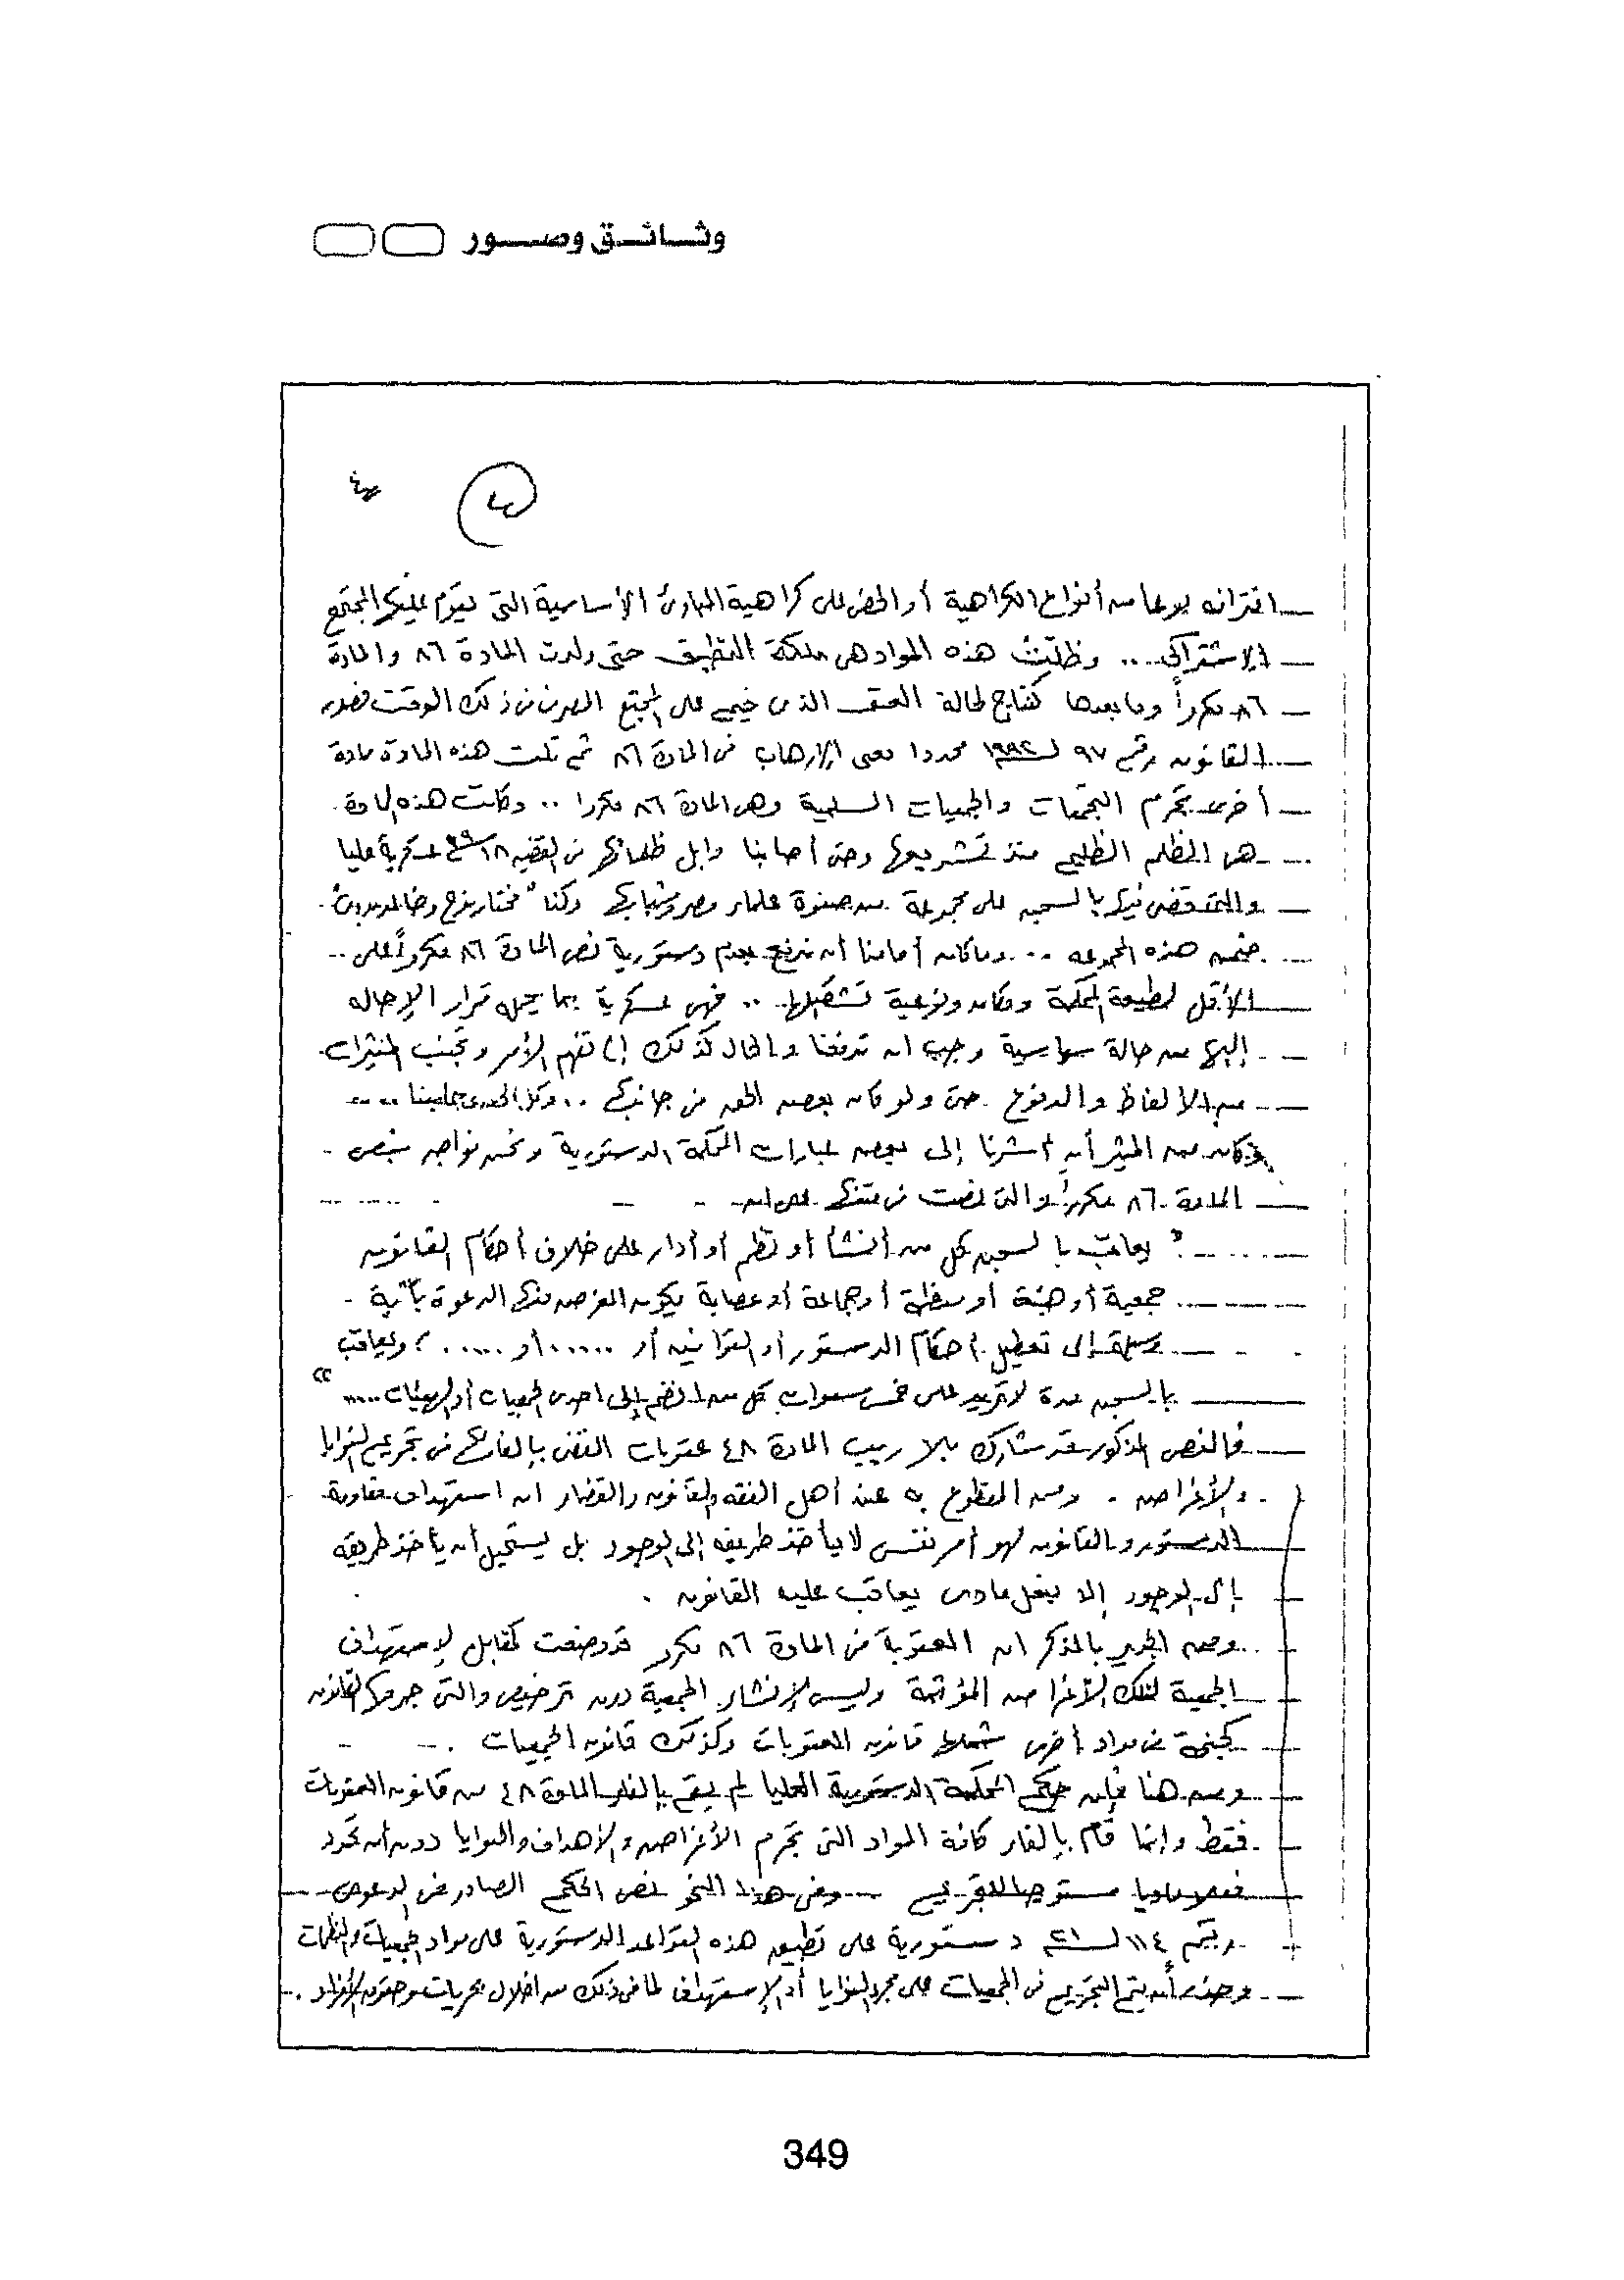 وثائق وصور
اقترانه بنوعا من أنواع الكراهية أو الحض على كراهية المبادئ الأساسية التى يقوم عليها المجتمع
الإشتراكى .. وظلت هذه المواد هى ملكة التطبيق حتى ولدت المادة ٨٦ والمادة
٨٦ مكرراً وما بعدها كنتاج لحالة العنف الذى خيم على المجتمع المصرى فى ذلك الوقت فصدر
القانون رقم ٩٧ لـ ١٩٩٢ محددا معنى الإرهاب فى المادة ٨٦ ثم تلت هذه المادة مادة
أخرى تجرم التجمعات والجمعيات السلمية وهى المادة ٨٦ مكررا .. وكانت هذه المادة
هى الظلم الظليم منذ تشريعها وحتى أصابنا وابل ظلماتها فى القضيه ١٨ عسكرية عليا
والتى قضى فيها بالسجن على مجموعة من صفوة علماء مصر وشبابها وكنا " مختار نوح وخالد بدوى "
ضمن هذه المجموعه .. وما كان أمامنا ان ندفع بعدم دستورية نص المادة ٨٦ مكرراً على ..
الأقل لطبيعة المحكمة ومكان ونوعية تشكيلها .. فهى عسكرية بما يحمله قرار الإحاله
إليها من حالة سياسية وجب ان تدفعنا والحال كذلك إلى تفهم الأمر وتجنب المثيرات
من الالفاظ والدفوع حتى ولو كان بعض الحق فى جانبها ..
وكان من المثير أن أشرنا إلى بعض عبارات المحكمة الدستورية ونحن نواجه بنص
المادة ٨٦ مكرراً والتى نصت فى متنها على ان
" يعاقب بالسجن كل من أنشأ أو نظم أو أدار على خلاف أحكام القانون
جمعية أو هيئة أو منظمة أو جماعة أو عصابة يكون الغرض منها الدعوة بأية
وسيلة إلى تعطيل أحكام الدستور أو القوانين أو ...... أو ..... ؛ ويعاقب
بالسجن مدة لا تزيد على خمس سنوات كل من انضم إلى احدى الجمعيات أو الهيئات ...... "
فالنص المذكور قد شارك بلا ريب المادة ٤٨ عقوبات المقضى بإلغائها فى تجريم النوايا
والأغراض . ومن المقطوع به عند أهل الفقه والقانون والقضاء ان استهداف مقاومة
الدستور والقانون لهو أمر نفسى لا يأخذ طريقه إلى الوجود بل يستحيل أن يأخذ طريقه
إلى الوجود إلا بفعل مادى يعاقب عليه القانون .
ومن الجدير بالذكر ان العقوبة فى المادة ٨٦ مكرر قد وضعت كمقابل لإستهداف
الجمعية لتلك الأغراض المؤثمة وليس لإنشاء الجمعية دون ترخيص والتى جرمها القانون
كجنحة فى مواد أخرى شملها قانون العقوبات وكذلك قانون الجمعيات .
ومن هنا فإن حكم المحكمة الدستورية العليا لم يقم بإلغاء المادة ٤٨ من قانون العقوبات
فقط وإنما قام بإلغاء كافة المواد التى تجرم الأغراض والأهداف والنوايا دون أن تحدد
فعلا ماديا مستوجبا للتجريم -- وفى هذا النحو نص الحكم الصادر فى الدعوى
رقم ١١٤ لـ ٢١ دستورية على تطبيق هذه القواعد الدستورية على مواد الجمعيات والمنظمات
وحذر أن يتم التجريم فى الجمعيات على مجرد النوايا أو الإستهداف لما فى ذلك من اخلال بحريات وحقوق الأفراد .
349